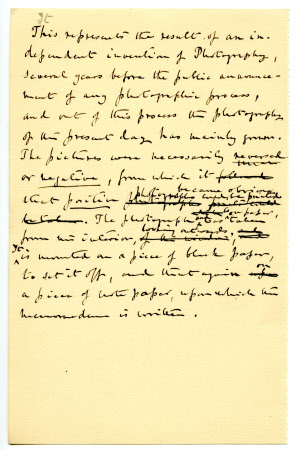 It
This represents the result of an in-
dependent invention of Photography,
several years before the public announce-
ment of any photographic process,
and out of this process the photography
of the present day has mainly grown.
The pictures were necessarily reversed
or negative, from which it
became obvious
that positive photographs could be printed
The photograph was taken
on paper,
from an interior, looking outwards,
It
is mounted on a piece of black paper,
to set it off, and that again on
a piece of note paper, upon which the
memorandum is written.